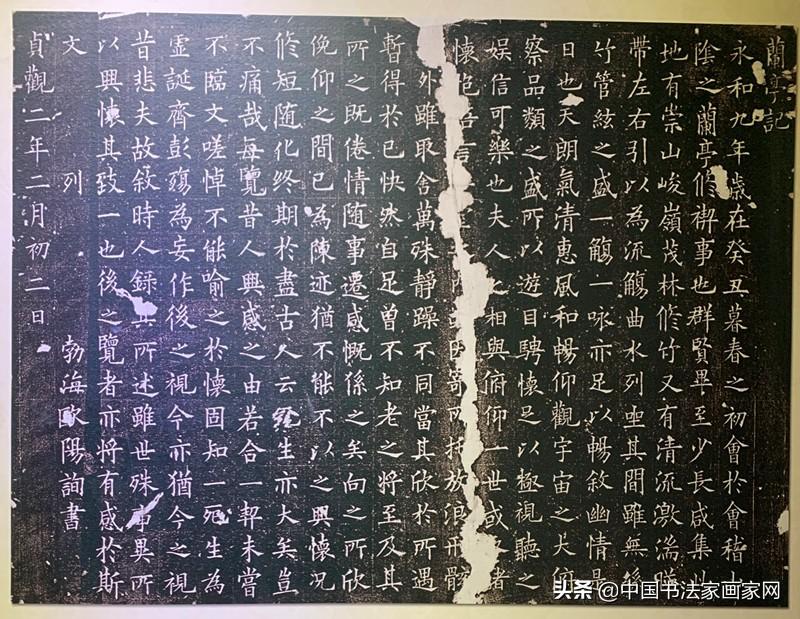 蘭亭記
永和九年歲在癸丑暮春之初會於會稽
陰之蘭亭脩禊事也群賢畢至少長咸集
地有崇山峻嶺茂林脩竹又有清流激湍暎
帶左右引以為流觴曲水列坐其間雖無絲
竹管絃之盛一觴一咏亦足以暢敘幽情是
日也天朗氣清惠風和暢仰觀宇宙之大俯
察品類之盛所以遊目騁懷足以極視聽之
娛信可樂也夫人之相與俯仰一世或者
懷抱言因寄所托放浪形骸
外雖取舍萬殊靜躁不同當其欣於所遇
暫得於己快然自足曾不知老之將至及其
所之既倦情随事遷感慨係之矣向之所欣
俛仰之間已為陳迹猶不能不以之興懷况
脩短随化終期於盡古人云死生亦大矣豈
不痛哉每覽昔人興感之由若合一契未嘗
不臨文嗟悼不能喻之於懷固知一死生為
虛誕齊彭殤為妄作後之視今亦猶今之視
昔悲夫故敘時人錄其所述雖世殊事異所
以興懷其致一也後之覽者亦將有感於斯
文 列 勃海歐陽詢書
貞觀二年二月初二日
头条 @中国书法家画家网